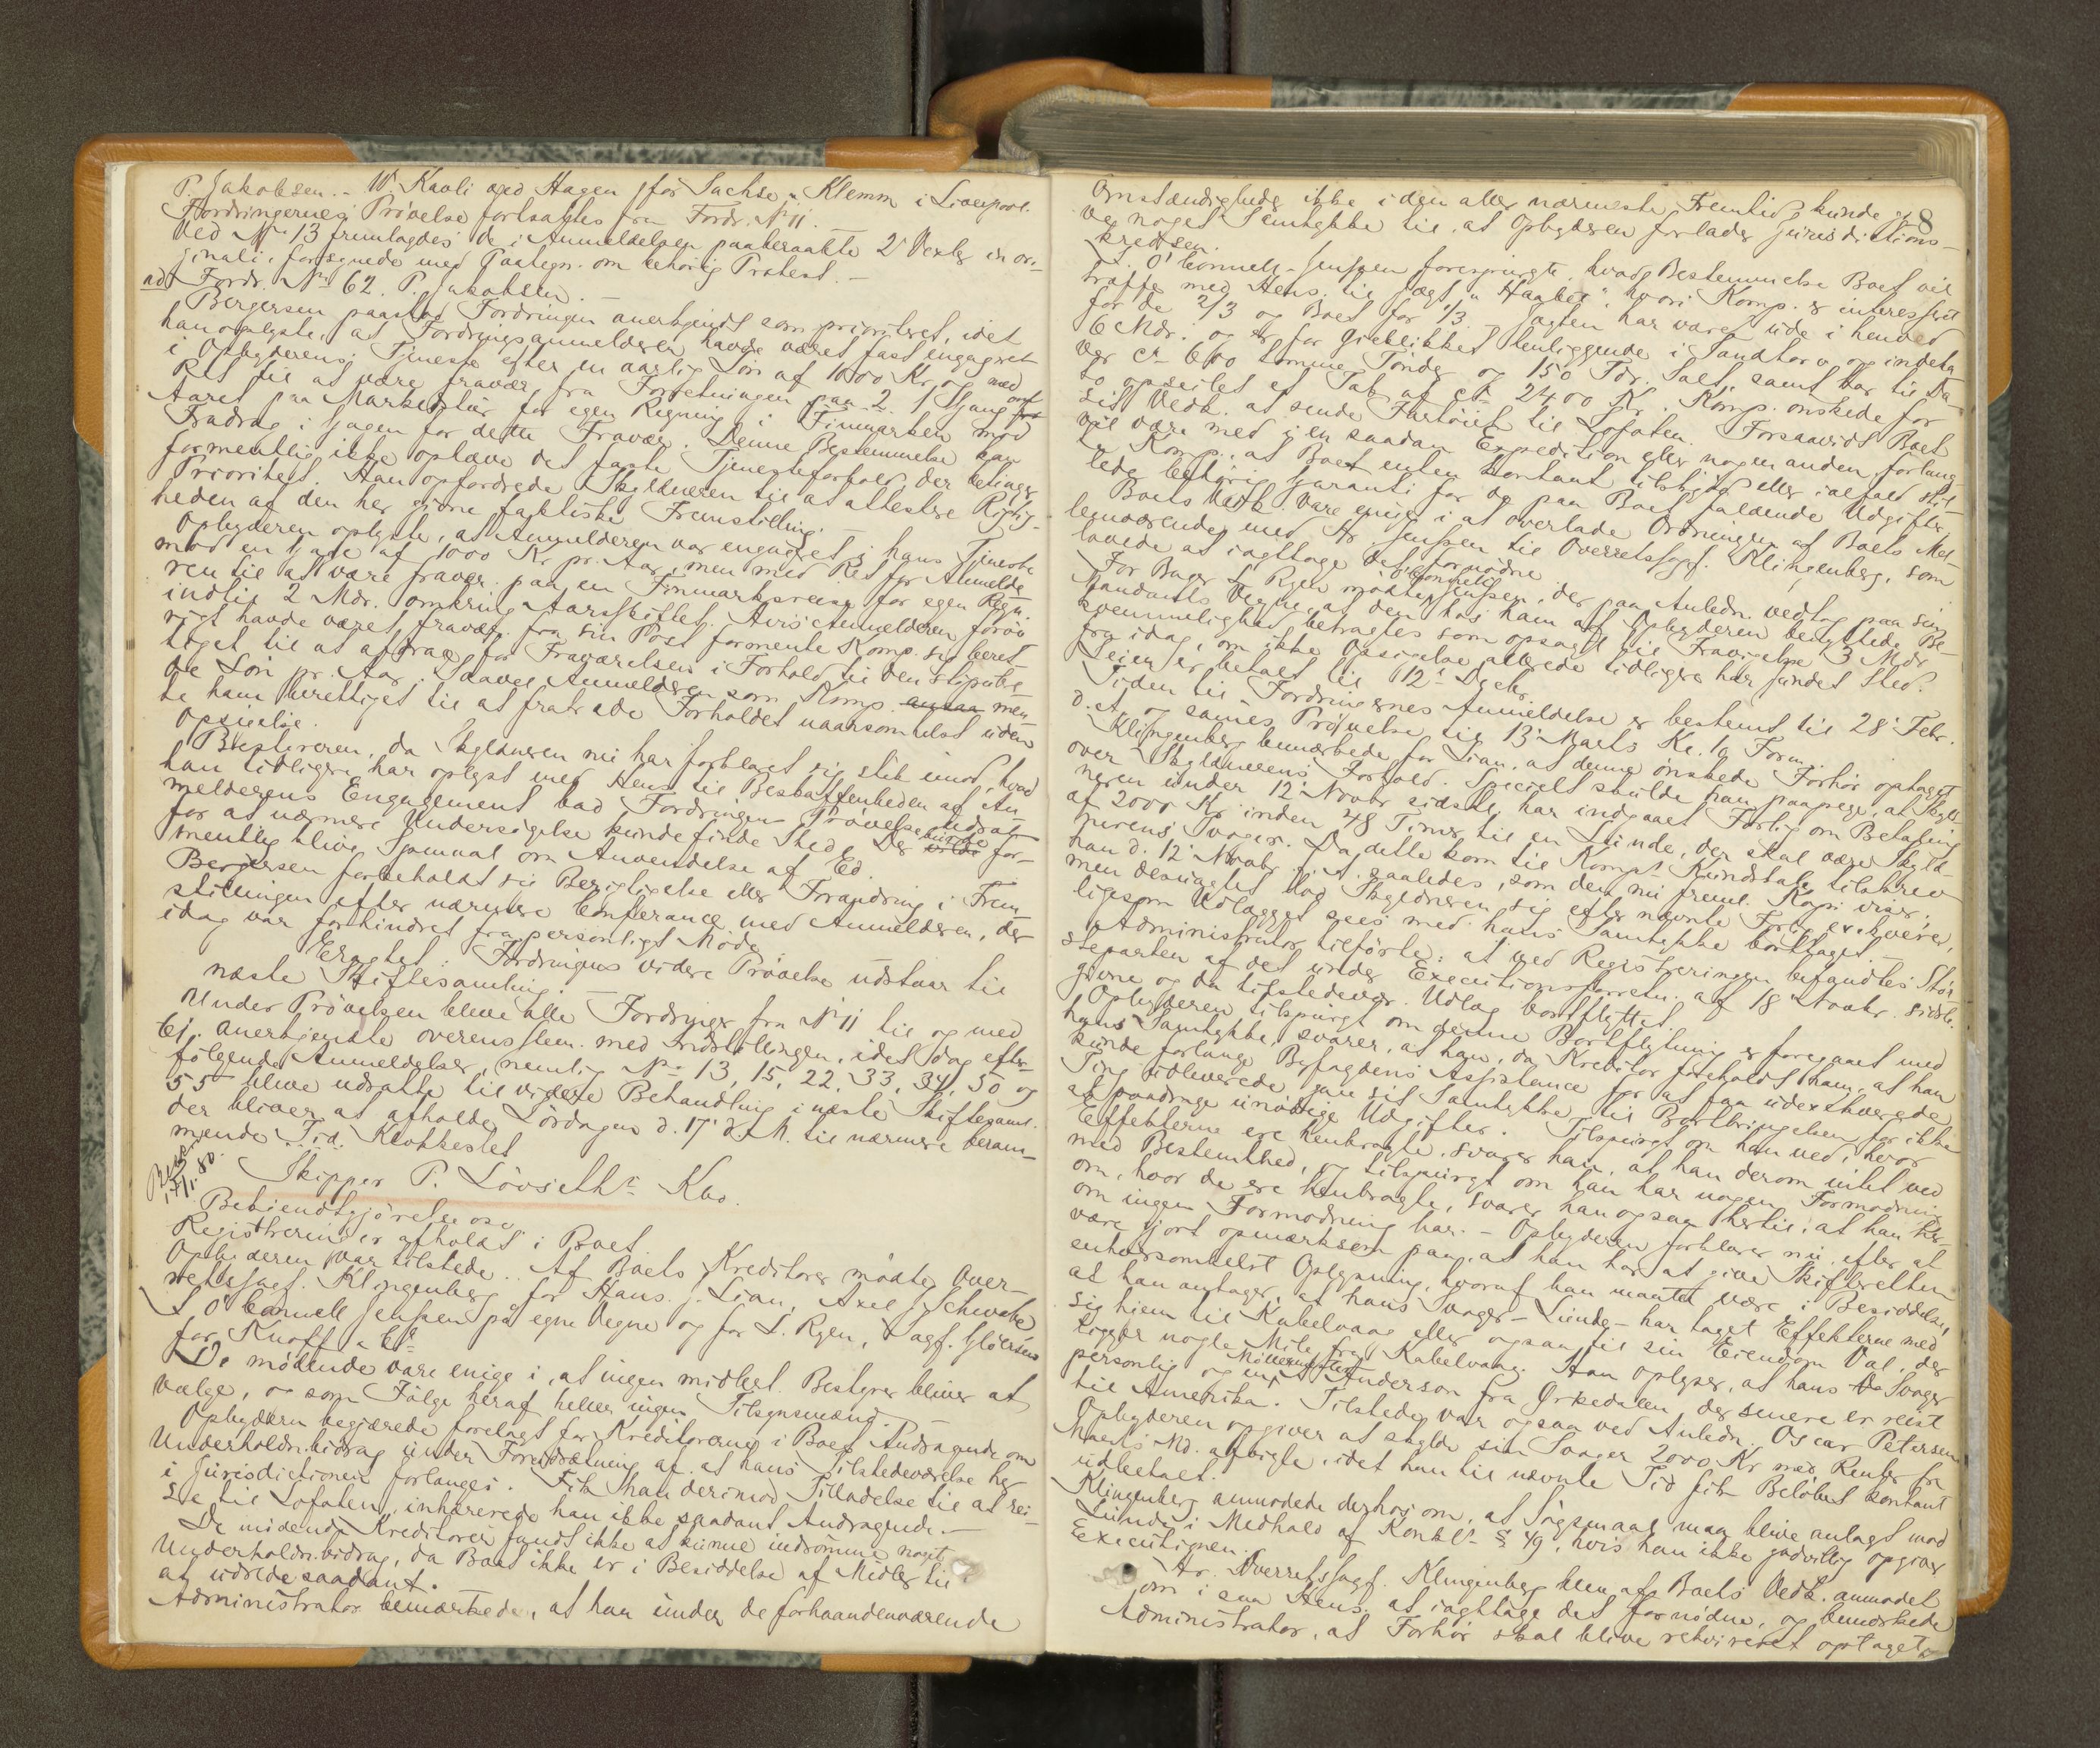 P. Jakobsen. - W. Kavli ved Hagen for Sachse & Klemm i Liverpool.
Fordringernes Prövelse fortsattes fra Fordr. № 11.
Ved № 13 fremlagdes de i Anmeldelsen paaberaabte 2 Vexler in ori-
ginali, forsynede med Paategn. om behörig Protest. -
ad Fordr. № 62. P. Jakobsen. -
Bergersen paastod Fordringen anerkjendt som prioriteret, idet
han oplyste, at Fordringsanmelderen havde været fast engageret
i Opbyderens Tjeneste efter en aarlig Lön af 1000 Kr. og med
Ret til at være fravær. fra Forretningen paa 2 Gang om
Aaret paa Markedstur for egen Regning i Finmarken mod
Fradrag i Gagen for dette Fravær. Denne Bestemmelse kan
formentlig ikke ophæve det faste Tjenesteforhold, der betinger
Prioritet. Han opfordrede Skyldneren til at attestere Rigtig-
heden af den her givne faktiske Fremstilling. -
Opbyderen oplyste, at Anmelderen var engageret i hans Tjeneste
mod en Gage af 1000 Kr. pr. Aar, men med Ret for Anmelde
ren til at være fravær. paa en Finmarksreise for egen Regn.
indtil 2 Mdr. omkring Aarsskiftet. Hvis Anmelderen foröv
rigt havde været fravær. fra sin Post formente Komp. sig beret-
tiget til at afdrage for Fraværelsen i Forhold til den stipulere
de Lön pr. Aar. Saavel Anmelderen som Komp. ansaa men-
te ham berettiget til at fratræde Forholdet naarsomhelst uden
Opsigelse.
Bestyreren, da Skyldneren nu har forklaret sig stik imod, hvad
han tidligere har oplyst med Hens. til Beskaffenheden af An
melderens Engagement bad Fordringens Prövelse udsat
for at nærmere Undersögelse kunde finde Sted. Der kunde for-
mentlig blive Spörsmaal om Anvendelse af Ed.
Bergersen forbeholdt sig Berigtigelse eller Forandring i Frem
stillingen efter nærmere Conferance med Anmelderen, der
idag var forhindret fra personligt Möde.
Eragtet: Fordringens videre Prövelse udstaar til
næste Skiftesamling. -
Under Prövelsen bleve alle Fordringer fra № 11 til og med
61. anerkjendte overensstem. med Indstillingen, idet dog efter-
fölgende Anmeldelser, nemlig № 13, 15, 22, 33, 34, 50 og
55 bleve udsatte til videre Behandling i næste Skiftesaml.
der bliver at afholde Lördagen d. 17' d. M. til nærmere beram-
mende Tid. Klokkeslet
Skipper P. Lövseths Kbo.
Bekjendtgjörelse osv
Registrering er afholdt i Boet.
Opbyderen var tilstede. Af Boets Kreditorer mödte Over-
retssagf. Klingenberg for Hans J. Lian, Axel J. Schwabe
L O'Connell Jenssen på egne Vegne og for L. Ryen, Sagf. Glöersen
for Knoff & Co
De mödende vare enige i, at ingen midlert. Bestyrer bliver at
vælge, og som Fölge heraf heller ingen Tilsynsmænd. -
Opbyderen begjærede forelagt for Kreditorerne i Boet Andragende om
Underholdn.bidrag under Forudsætning af at hans Tilstedeværelse her
i Jurisdictionen forlanges. Fik han derimod Tilladelse til at rei-
se til Lofoten, inhærerede han ikke saadant Andragende. -
De mödende Kreditorer fandt ikke at kunne indrömme noget
Underholdn.bidrag, da Boet ikke er i Besiddelse af Midler til
at udrede saadant.
Administrator bemærkede, at han under de forhaandenværende
8
Omstændigheder ikke i den aller nærmeste Fremtid kunde gi-
ve noget Samtykke til, at Opbyderen forlader Jurisdictions-
kredsen.
L. O'Connell-Jenssen forespurgte, hvad Bestemmelse Boet vil
træffe med Hens. til Jægt "Haabet", hvori Komp. er interesseret
for de 2/3 og Boet for 1/3. Jægten har været ude i henved
6 Mdr. og er for Öieblikket henliggende i Sandtorv og indeha-
ver ca 600 tomme Tönder og 150 Tdr. Salt, samt har til Da-
to opseilet et Tab af ca 2400 Kr. Komp. önskede for
sit Vedk. at sende Fartöiet til Lofoten. Forsaavidt Boet
vil være med i en saadan Expedition eller nogen anden, forlang-
te Komp., at Boet enten kontant tilskjöd eller ialfald stil-
lede behörig Garanti for de paa Boet faldende Udgifter.
Boets Vedk. vare enige i at overlade Ordningen af Boets Mel-
lemværende med Hr. Jenssen til Overretssagf. Klingenberg, som
lovede at iagttage det fornödne.
For Bager L Ryen mödte O'Connell Jenssen, der paa Anledn. vedtog paa sin
Mandants Vegne, at den hos ham af Opbyderen benyttede Be-
kvemmelighed betragtes som opsagt til Fravigelse 3 Mdr
fra idag, om ikke Opsigelse allerede tidligere har fundet Sted.
Leien er betalt til 12' Decbr.
Tiden til Fordringernes Anmeldelse er bestemt til 28' Febr.
d. A. og sammes Prövelse til 13' Marts Kl. 10 Form.
Klingenberg bemærkede for Lian, at denne önskede Forhör optaget
over Skyldnerens Forhold. Specielt skulde han paapege, at Skyld-
neren under 12' Novbr sidstl. har indgaaet Forlig om Betaling
af 2000 Kr. inden 48 Timer til en Lunde, der skal være Skyld-
nerens Svoger. Da dette kom til Komp's Kundskab tilskrev
han d. 12' Novbr. f. A. saaledes, som den nu freml. Kopi viser,
men desuagtet lod Skyldneren sig efter nævnte Forlig exekvere,
ligesom Udlægget sees med hans Samtykke borttaget. -
Administrator tilförte: at ved Registreringen befandtes Stör-
steparten af det under Executionsforretn. af 18 Novbr. sidstl.
givne og da tilstedevær. Udlæg bortflyttet.
Opbyderen tilspurgt om denne Bortflytning er foregaaet med
hans Samtykke, svarer, at han, da Kreditor foreholdt ham, at han
kunde forlange Byfogdens Assistance for at faa udexekverede
Ting udleverede gav sit Samtykke til Bortbringelsen for ikke
at paadrage unödige Udgifter. Tilspurgt om han ved, hvor
Effekterne ere henbragte, svarer han, at han derom intet ved
med Bestemthed, og tilspurgt om han har nogen Formodning
om, hvor de ere henbragte, svarer han ogsaa hertil, at han her-
om ingen Formodning har. - Opbyderen forklarer nu, efter at
være gjort opmærksom paa, at han har at give Skifteretten
enhversomhelst Oplysning, hvoraf han maatte være i Besiddelse,
at han antager, at hans Svoger - Lunde - har taget Effekterne med
sig hjem til Kabelvaag eller ogsaa til sin Eiendom Val, der
ligger nogle Mile fra Kabelvaag. Han oplyser, at hans Svoger
personlig og en Möllerm.söster Anderson fra Ørkedalen, der senere er reist
til Amerika. Tilstede var ogsaa ved Anledn. Oscar Petersen
Opbyderen opgiver at skylde sin Svoger 2000 Kr med Renter fra
Marts Md. afvigte, idet han til nævnte Tid fik Belöbet kontant
udbetalt.
Klingenberg anmodede derhos om, at Sögsmaal maa blive anlagt mod
Lunde i Medhold af Konkl. § 49, hvis han ikke godvillig opgiver
Executionen.
Hr. Overretssagf. Klingenberg blev af Boets Vedk. anmodet
om i saa Hens. at iagttage det fornödne, og bemærkede
Administrator, at Forhör skal blive rekvireret optaget